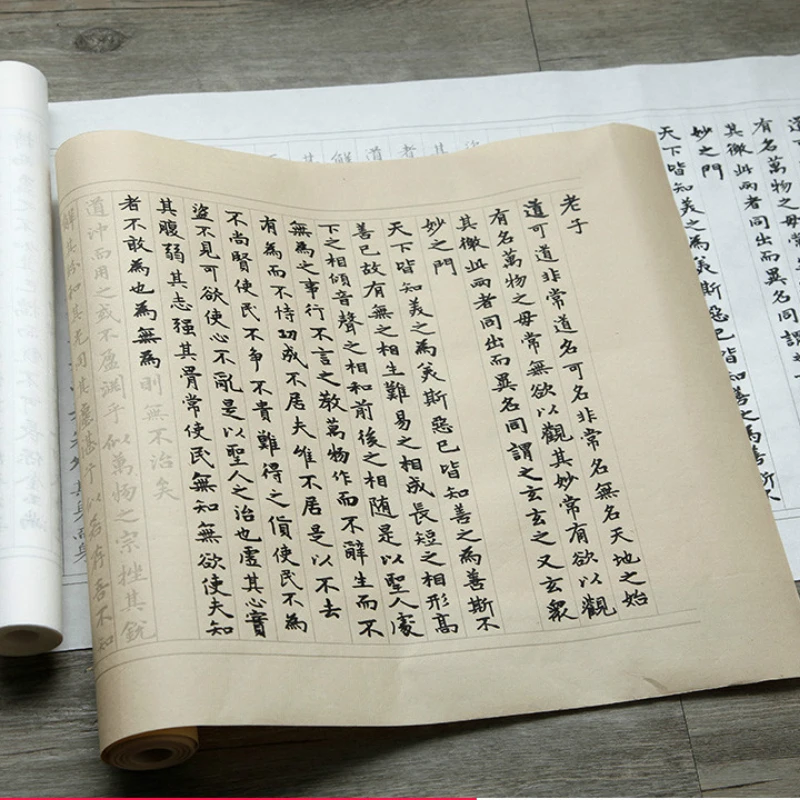 老子
道可道非常道名可名非常名無名天地之始
有名萬物之母常無欲以觀其妙常有欲以觀
其徼此兩者同出而異名同謂之玄玄之又玄眾
妙之門
天下皆知美之為美斯惡已皆知善之為善斯不
善已故有無之相生難易之相成長短之相形高
下之相傾音聲之相和前後之相随是以聖人處
無為之事行不言之教萬物作而不辭生而不
有為而不恃功成不居夫唯不居是以不去
不尚賢使民不争不貴難得之貨使民不為
盜不見可欲使心不亂是以聖人之治也虛其心實
其腹弱其志强其骨常使民無知無欲使夫知
者不敢為也為無為則無不治矣
道沖而用之或不盈渊乎似萬物之宗挫其銳
解其忿和其光同其塵湛乎似若存吾不知
道
有名萬物之母常
其徼此兩者同出而異名同謂
妙之門
天下皆知美之為美斯惡已皆知善之為善斯不